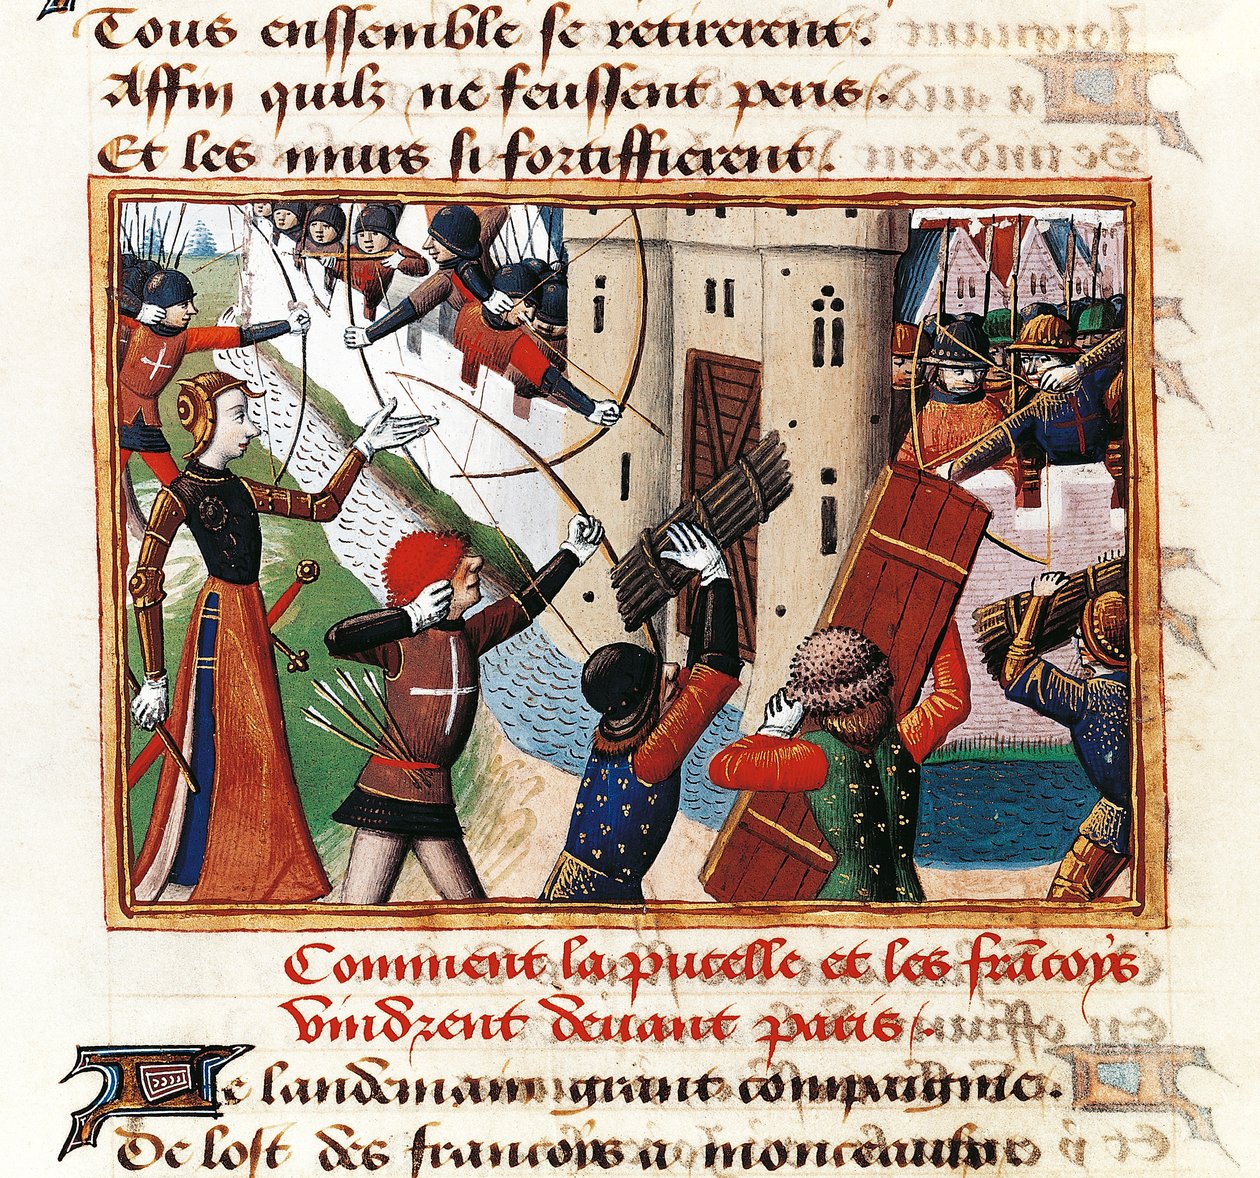 Tous enssemble se retirerent.
Affin quilz ne feussent peris.
Et les murs si fortiffierent.
Comment la pucelle et les francoys
vindrent deuant paris.
Le landemain grant compaignie.
De lost des francois a